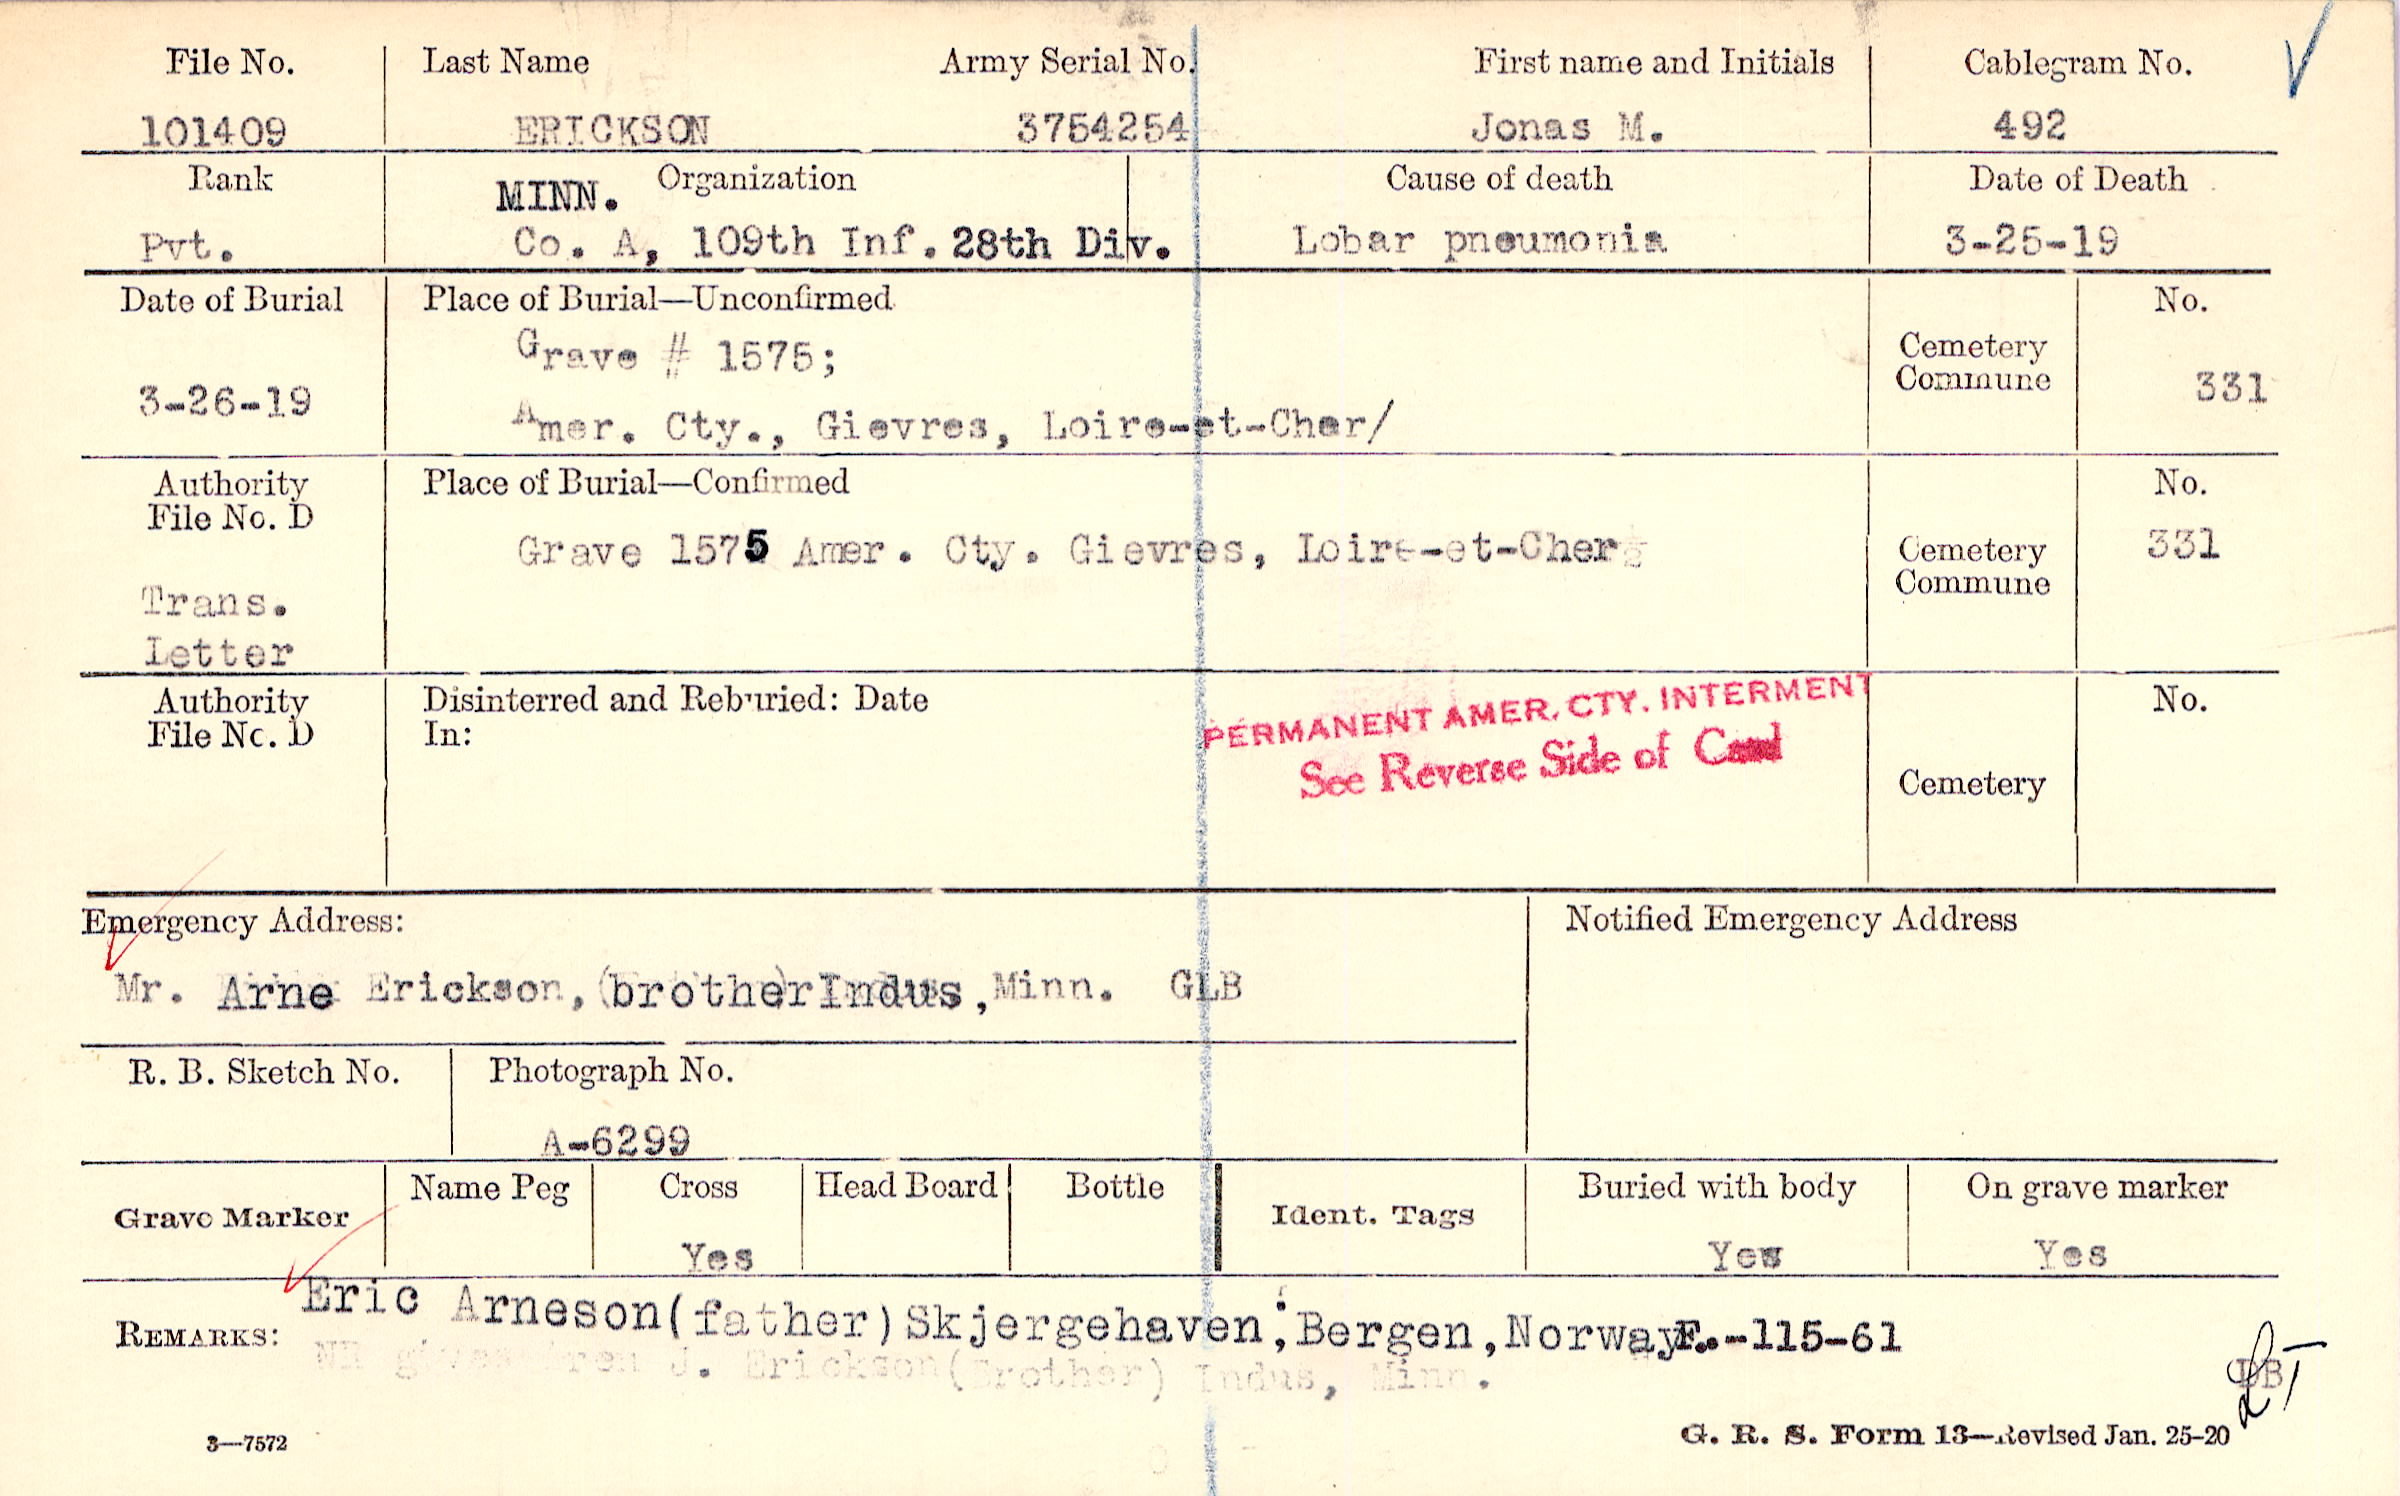 File No. Last Name Army Serial No. First name and Initials Cablegram No.
101409 ERICKSON 3754254 Jonas M. 492
Rank MINN. Organization Cause of death Date of Death
Pvt. Co. A, 109th Inf. 28th Div. Lobar pneumonia 3-25-19
Date of Burial Place of Burial—Unconfirmed No.
Grave # 1575; Cemetery
Commune
3-26-19 331
Amer. Cty., Gievres, Loire-et-Cher/
Authority Place of Burial—Confirmed No.
File No. D
Grave 1575 Amer. Cty. Gievres, Loire-et-Cher Cemetery 331
Commune
Trans.
Letter
Authority Disinterred and Reburied: Date No.
File No. D In:
PERMANENT AMER. CTY. INTERMENT
See Reverse Side of Card
Cemetery
Emergency Address: Notified Emergency Address
Mr. Arne Erickson, (brother) Indus, Minn. GLB
R. B. Sketch No. Photograph No.
A-6299
Grave Marker Name Peg Cross Head Board Bottle Ident. Tags Buried with body On grave marker
Yes Yes Yes
REMARKS: Eric Arneson(father)Skjergehaven;Bergen,Norway F.-115-61
J. Erickson(Brother) Indus, Minn.
DB
3—7572 G. R. S. Form 13—Revised Jan. 25-20